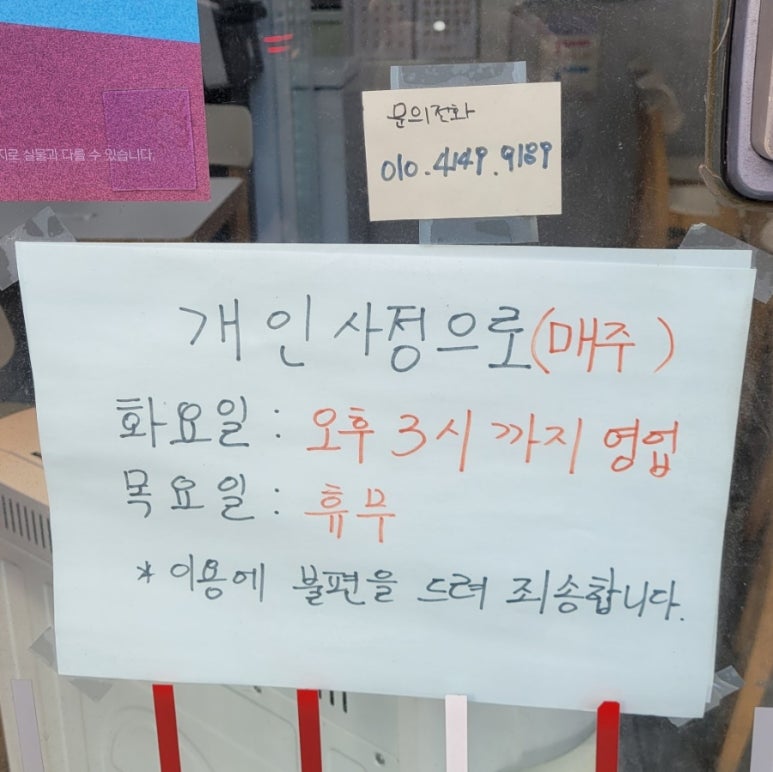 지로 실물과 다를 수 있습니다.
문의전화
010.4149.9189
개인사정으로(매주)
화요일 : 오후 3시 까지 영업
목요일 : 휴무
* 이용에 불편을 드려 죄송합니다.